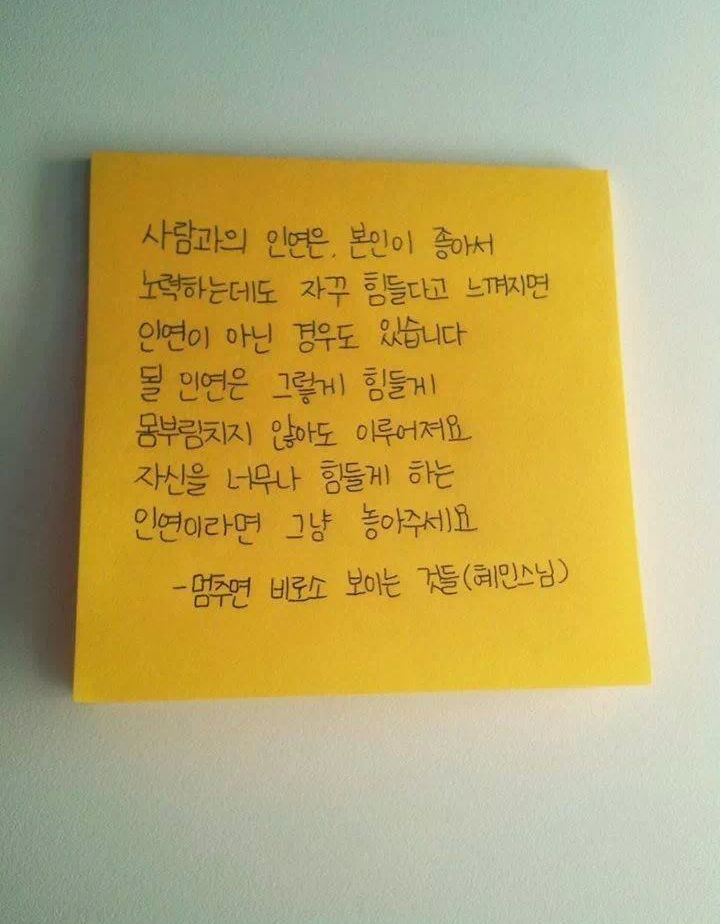 사람과의 인연은, 본인이 좋아서
노력하는데도 자꾸 힘들다고 느껴지면
인연이 아닌 경우도 있습니다
될 인연은 그렇게 힘들게
몸부림치지 않아도 이루어져요
자신을 너무나 힘들게 하는
인연이라면 그냥 놓아주세요
-멈추면 비로소 보이는 것들(혜민스님)